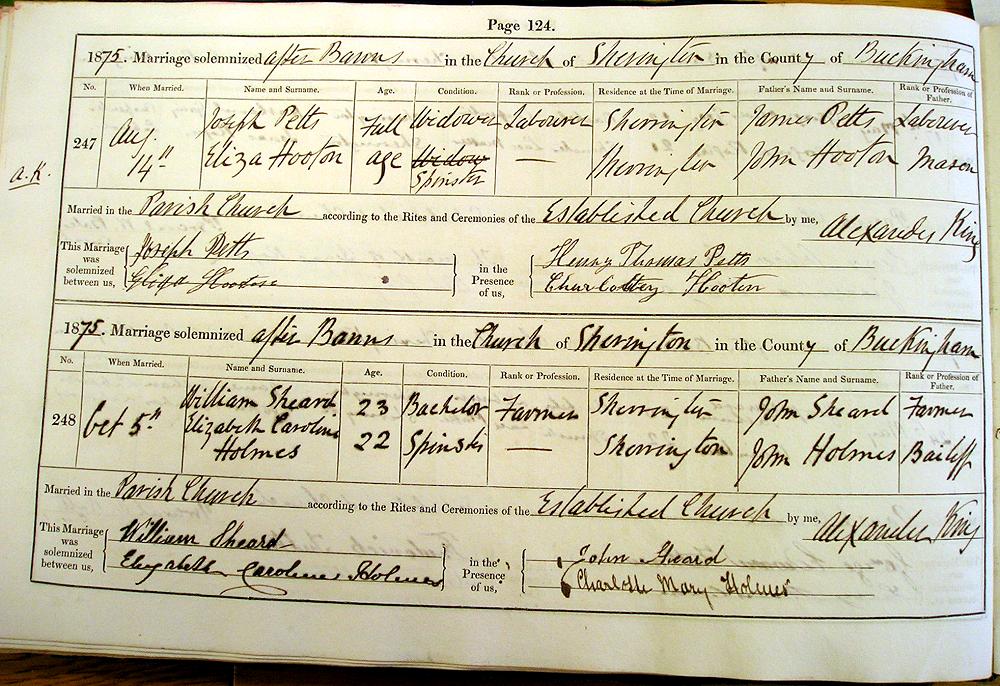 Page 124.
1875. Marriage solemnized after Banns in the Church of Sherrington in the County of Buckingham
No. When Married. Name and Surname. Age. Condition. Rank or Profession. Residence at the Time of Marriage. Father's Name and Surname. Rank or Profession of Father.
247 Aug 14" Joseph Petts Full Widower Labourer Sherrington James Petts Labourer
Eliza Hooton age Widow — Sherrington John Hooton Mason
Spinster
a.K.
Married in the Parish Church according to the Rites and Ceremonies of the Established Church by me, Alexander King
This Marriage was solemnized between us, Joseph Petts in the Presence of us, Henry Thomas Petts
Eliza Hooton Hooton
1875. Marriage solemnized after Banns in the Church of Sherrington in the County of Buckingham
No. When Married. Name and Surname. Age. Condition. Rank or Profession. Residence at the Time of Marriage. Father's Name and Surname. Rank or Profession of Father.
248 Oct 5th William Sheard 23 Bachelor Farmer Sherrington John Sheard Farmer
Elizabeth Caroline 22 Spinster — Sherrington John Holmes Bailiff
Holmes
Married in the Parish Church according to the Rites and Ceremonies of the Established Church by me, Alexander King
This Marriage was solemnized between us, William Sheard in the Presence of us, John Sheard
Elizabeth Caroline Holmes Charlotte Mary Holmes